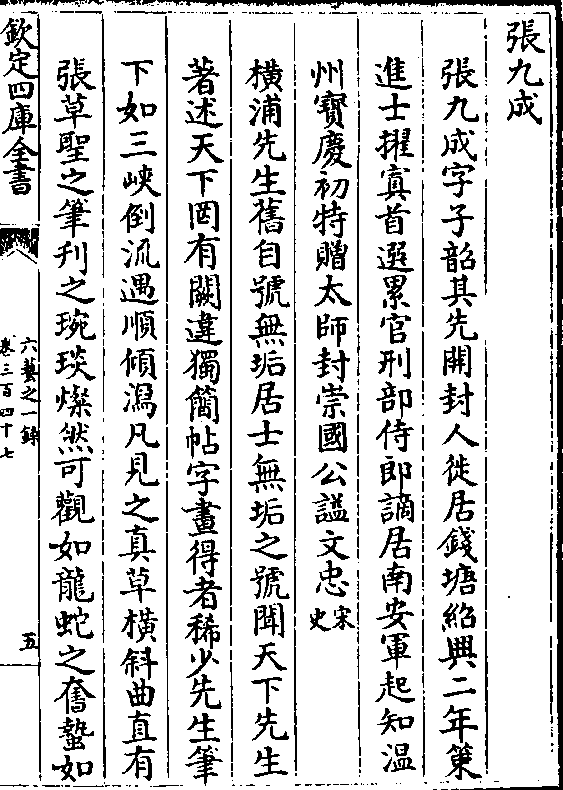 張九成
張九成字子韶其先開封人徙居錢塘紹興二年策
進士擢寘首選累官刑部侍郎謫居南安軍起知温
州寶慶初特贈太師封崇國公謚文忠宋史
橫浦先生舊自號無垢居士無垢之號聞天下先生
著述天下罔有闕違獨簡帖字畫得者稀少先生筆
下如三峽倒流遇順傾瀉凡見之真草橫斜曲直有
張草聖之筆刋之琬琰燦然可觀如龍蛇之奮蟄如
欽定四庫全書
六藝之一錄
卷三百四十七
五